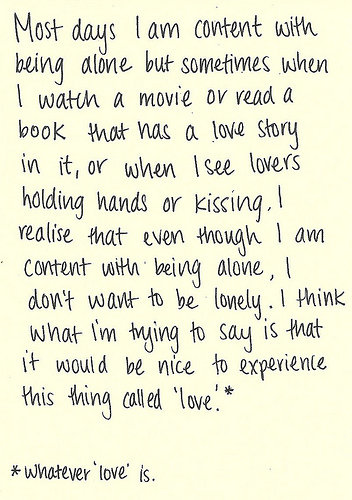 Most days I am content with
being alone but sometimes when
I watch a movie or read a
book that has a love story
in it, or when I see lovers
holding hands or kissing, I
realise that even though I am
content with being alone, I
don't want to be lonely. I think
what I'm trying to say is that
it would be nice to experience
this thing called 'love'.*
*whatever 'love' is.